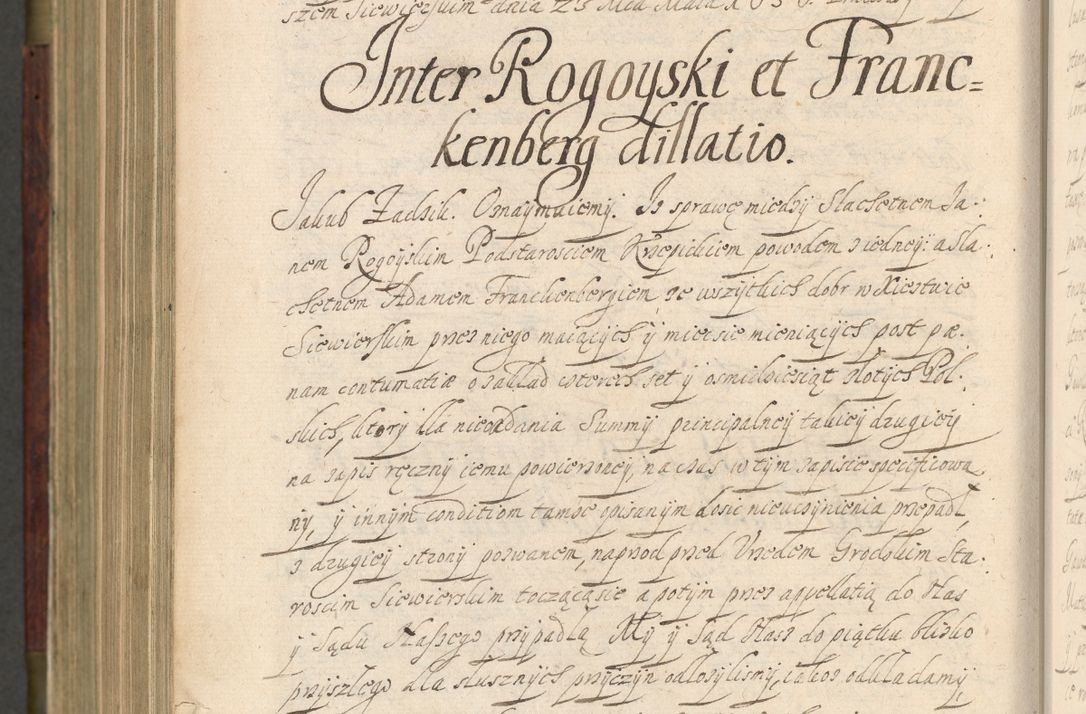 szem Siewierskim dnia 23 Mca Maia
Inter Rogoyski et Franc=
kenberg dillatio.
Jakub Zadzik. Oznaymuiemy. Iż sprawę miedzy Slachetnem Ja:
nem Rogoyskim Podstarosciem Krzepickiem powodem z iedney: a Sla:
chetnem Adamem Franckenbergiem, ze wszytkich dobr w Xięstwie
Siewierskim przez niego maiących y miecsie mieniących post pæ:
nam contumatiæ o zakład czterech set y osmidziesiąt złotych Pol:
skich, ktory dla nieoddania Summy principalney takiey drugiey
na zapis ręczny iemu powierzoney, na czas w tym zapisie specificowa
ny, y innym conditiom tamże opisanym dosic nieuczynienia przepadł,
z drugiey strony pozwanem, naprzod przed Urzędem Grodzkim Sta:
roscim Siewierskim toczącąsie a potym przez appellatią do Nas
y Sądu Naszego przypadłą My y Sąd Nasz do piątku blisko
przyszłego dla słusznych przyczyn odłożylismy, iakoż odkładamy,